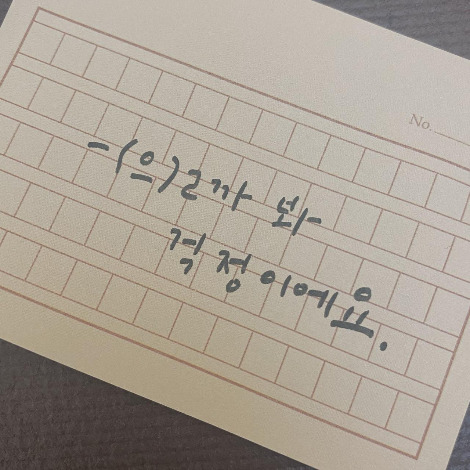 No.
-(으)ㄹ까 봐
걱정이에요.